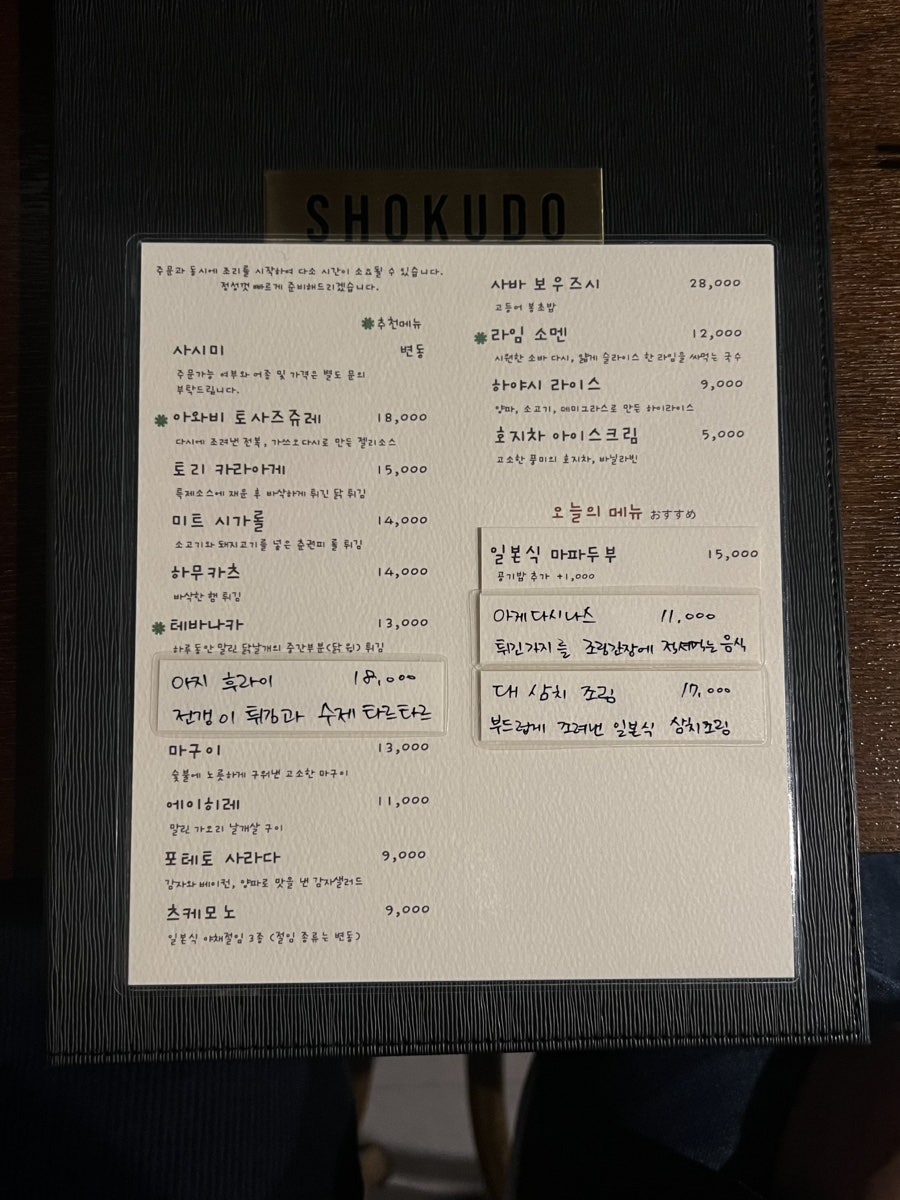 SHOKUDO
주문과 동시에 조리를 시작하여 다소 시간이 소요될 수 있습니다.
정성껏 빠르게 준비해드리겠습니다.
추천메뉴
사시미 변동
주문가능 여부와 어종 및 가격은 별도 문의
부탁드립니다.
아와비 토사즈쥬레 18,000
다시에 조려낸 전복, 가쓰오다시로 만든 젤리소스
토리 카라아게 15,000
특제소스에 재운 후 바삭하게 튀긴 닭 튀김
미트 시가롤 14,000
소고기와 돼지고기를 넣은 춘권피 롤 튀김
하무카츠 14,000
바삭한 햄 튀김
테바나카 13,000
하루동안 말린 닭날개의 중간부분(닭 윙) 튀김
아지 후라이 18,000
전갱이 튀김과 수제 타르타르
마구이 13,000
숯불에 노릇하게 구워낸 고소한 마구이
에이히레 11,000
말린 가오리 날개살 구이
포테토 사라다 9,000
감자와 베이컨, 양파로 맛을 낸 감자샐러드
츠케모노 9,000
일본식 야채절임 3종 (절임 종류는 변동)
사바 보우즈시 28,000
고등어 봉초밥
라임 소멘 12,000
시원한 소바 다시, 얇게 슬라이스 한 라임을 싸먹는 국수
하야시 라이스 9,000
양파, 소고기, 데미그라스로 만든 하이라이스
호지차 아이스크림 5,000
고소한 풍미의 호지차, 바닐라빈
오늘의 메뉴 おすすめ
일본식 마파두부 15,000
공기밥 추가 +1,000
아게다시나스 11,000
튀긴가지를 조림간장에 적셔먹는 음식
대 삼치 조림 17,000
부드럽게 조려낸 일본식 삼치조림